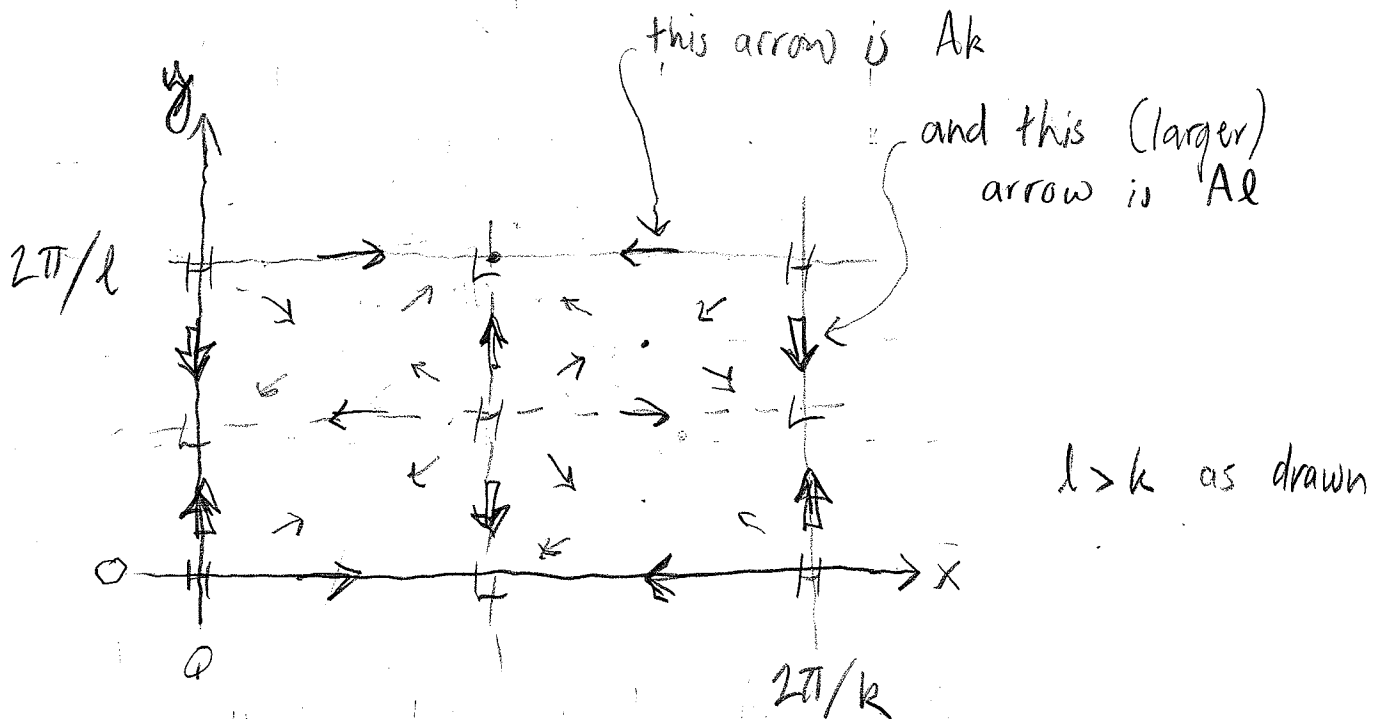 this arrow is Ak
y
and this (larger)
arrow is Al
2π/l
H L H
L H L
l > k as drawn
O H L H x
O
2π/k